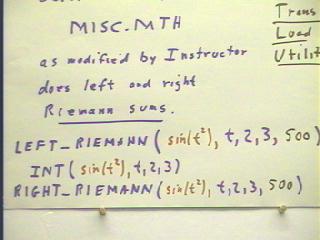 MISC.MTH
as modified by Instructor
does left and right
Riemann sums.
LEFT_RIEMANN (sin(t²), t, 2, 3, 500)
INT (sin(t²), t, 2, 3)
RIGHT_RIEMANN (sin(t²), t, 2, 3, 500)
Trans
Load
Utilit